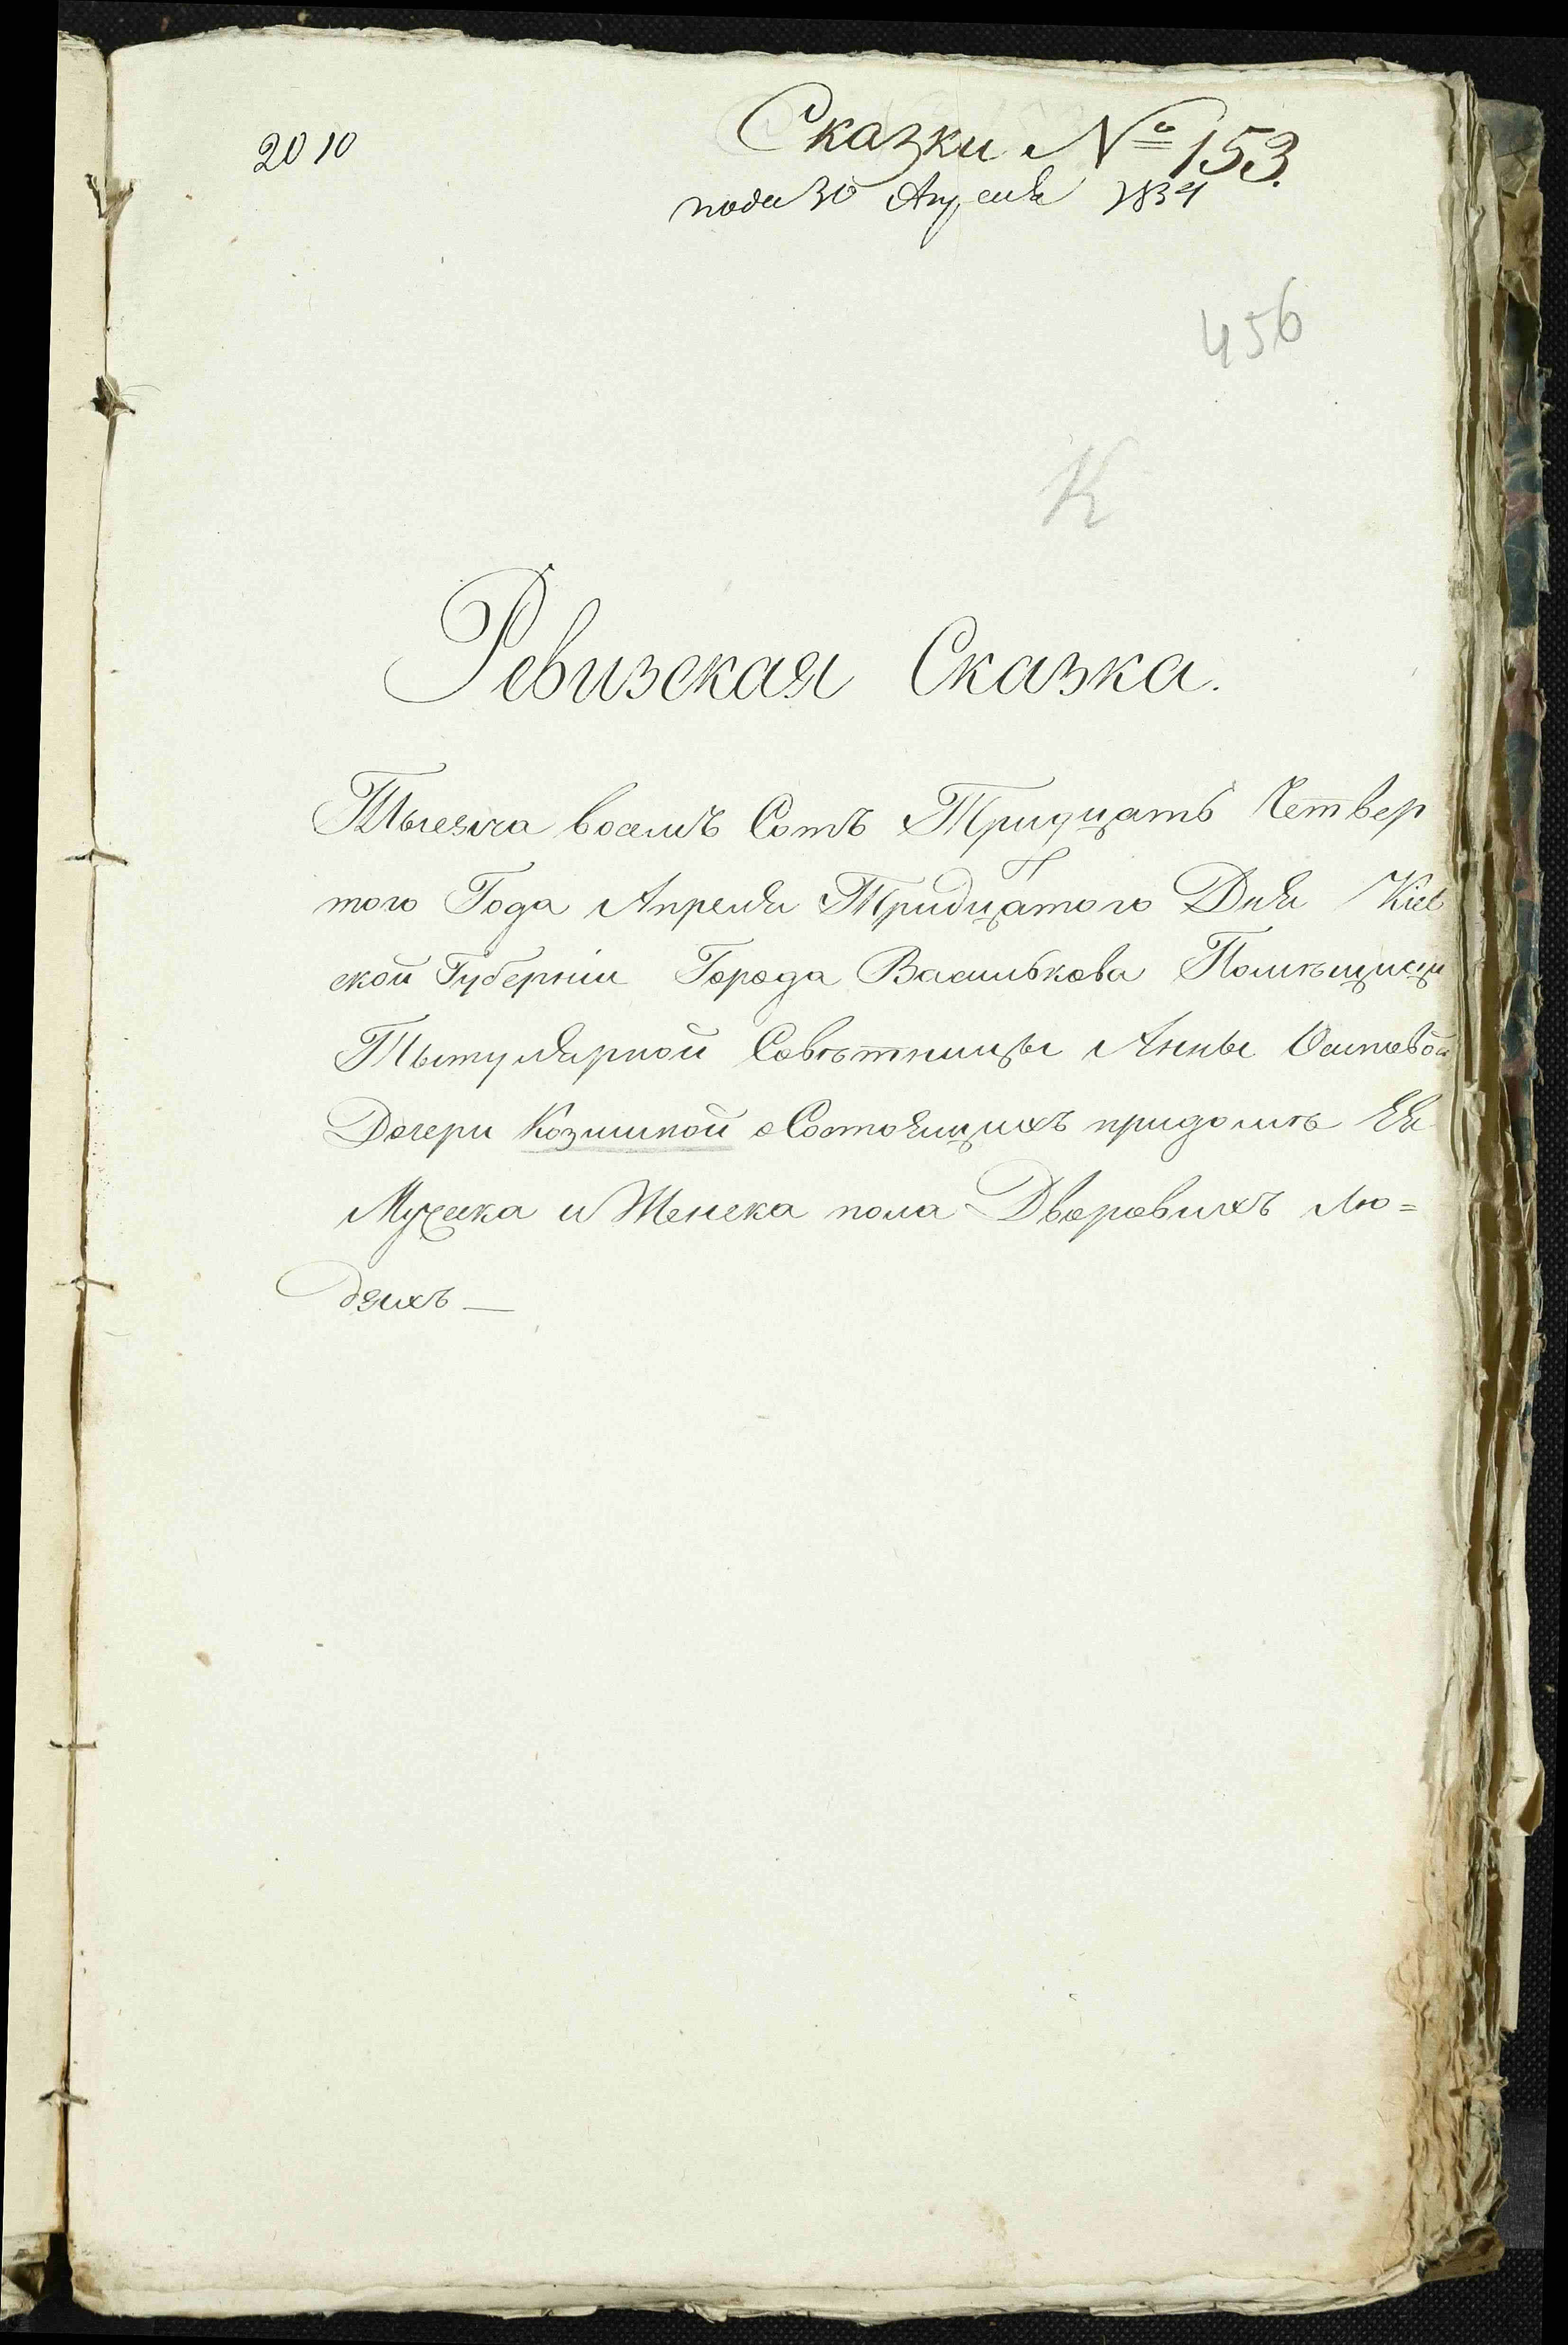 2010
Сказки № 153.
пода 30 Апреля 1834
456
К
Ревизская Сказка.
Тысяча восемъ Сотъ Тридцать Четвер
того Года Апреля Тридцатого Дня Кіев
ской Губерніи Города Василькова Помѣщицы
Тытулярной Совѣтницы Анны Осиповой
Дочери Козминой о Состоящихъ придомѣ Ея
Мужска и Женска пола Дворовихъ Лю=
дяхъ —